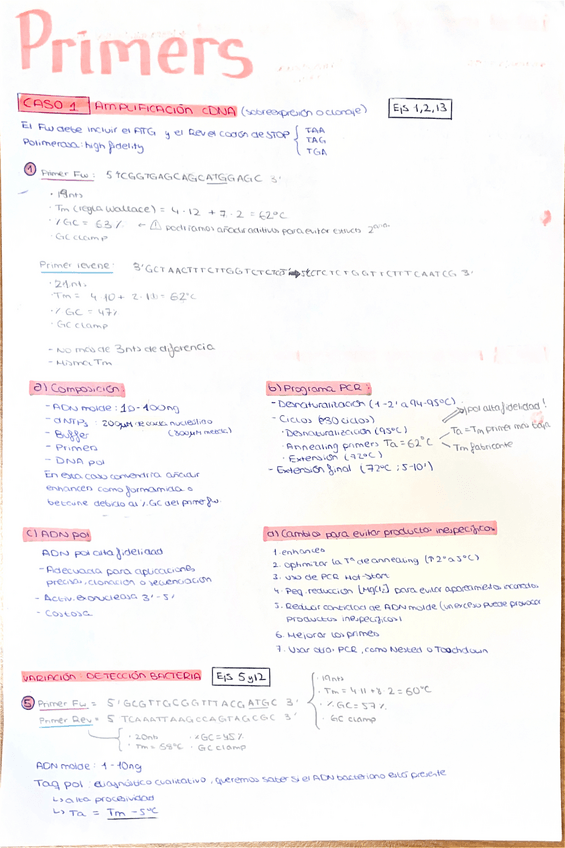 Primers
CASO 1 AMPLIFICACIÓN cDNA (sobreexpresión o clonaje) Ejs 1,2,13
El Fw debe incluir el ATG y el Rev el codón de STOP { TAA
TAG
TGA
Polimerasa: high fidelity
① Primer Fw: 5' tCGGTGAGCAGCATGGAGC 3'
· 19nts
· Tm (regla Wallace) = 4·12 + 7·2 = 62ºC
· % GC = 63% ← ⚠ podríamos añadir aditivos para evitar estruc 2arias
· GC clamp
Primer reverse: 3' GCTAACTTTCTTGGTCTCT
CTCTCTGGTTCTTTCAATCG 3'
· 21nts
· Tm = 4·10 + 2·11 = 62ºC
· % GC = 47%
· GC clamp
- No más de 3nts de diferencia
- Misma Tm
a) Composición:
- ADN molde: 10-100ng
- dNTPs: 200µM de cada nucleótido
(800µM mezcla)
- Buffer
- Primers
- DNA pol
En este caso convendría añadir
enhancers como formamida o
betaine debido al % GC del primer fw
b) Programa PCR:
- Desnaturalización (1-2' a 94-95ºC)
- Ciclos (≈30 ciclos)
· Desnaturalización (95ºC)
· Annealing primers Ta = 62ºC
· Extensión (72ºC)
- Extensión final (72ºC; 5-10')
¡pol alta fidelidad!
Ta = Tm primer más baja
Tm fabricante
c) ADN pol
ADN pol alta fidelidad
- Adecuada para aplicaciones
precisas, clonación o secuenciación
- Activ. exonucleasa 3'-5'
- Costosa
d) Cambios para evitar productos inespecíficos
1. enhancers
2. optimizar la Tª de annealing (↑2º a 3ºC)
3. uso de PCR Hot-Start
4. Peq. reducción [MgCl2] para evitar apareamientos incorrectos
5. Reducir cantidad de ADN molde (un exceso puede provocar
productos inespecíficos)
6. Mejorar los primers
7. Usar otra PCR, como Nested o Touchdown
VARIACIÓN: DETECCIÓN BACTERIA Ejs 5 y 12
⑤ Primer Fw = 5' GCGTTGCGGTTTACGATGC 3'
· 19nts
· Tm = 4·11 + 8·2 = 60ºC
· % GC = 57%
· GC clamp
Primer Rev = 5' TCAAATTAAGCCAGTAGCGC 3'
· 20nts · % GC = 45%
· Tm = 58ºC · GC clamp
ADN molde: 1-10ng
Taq pol: diagnóstico cualitativo, queremos saber si el ADN bacteriano está presente
↳ alta procesividad
↳ Ta = Tm - 5ºC